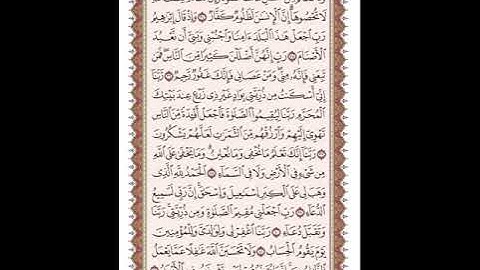 لَا تُحْصُوهَآ إِنَّ ٱلْإِنسَٰنَ لَظَلُومٌ كَفَّارٌ وَإِذْ قَالَ إِبْرَٰهِيمُ
رَبِّ ٱجْعَلْ هَٰذَا ٱلْبَلَدَ ءَامِنًا وَٱجْنُبْنِى وَبَنِىَّ أَن نَّعْبُدَ
ٱلْأَصْنَامَ رَبِّ إِنَّهُنَّ أَضْلَلْنَ كَثِيرًا مِّنَ ٱلنَّاسِ فَمَن
تَبِعَنِى فَإِنَّهُۥ مِنِّى وَمَنْ عَصَانِى فَإِنَّكَ غَفُورٌ رَّحِيمٌ رَّبَّنَآ
إِنِّىٓ أَسْكَنتُ مِن ذُرِّيَّتِى بِوَادٍ غَيْرِ ذِى زَرْعٍ عِندَ بَيْتِكَ
ٱلْمُحَرَّمِ رَبَّنَا لِيُقِيمُوا۟ ٱلصَّلَوٰةَ فَٱجْعَلْ أَفْـِٔدَةً مِّنَ ٱلنَّاسِ
تَهْوِىٓ إِلَيْهِمْ وَٱرْزُقْهُم مِّنَ ٱلثَّمَرَٰتِ لَعَلَّهُمْ يَشْكُرُونَ
رَبَّنَآ إِنَّكَ تَعْلَمُ مَا نُخْفِى وَمَا نُعْلِنُ وَمَا يَخْفَىٰ عَلَى ٱللَّهِ
مِن شَىْءٍ فِى ٱلْأَرْضِ وَلَا فِى ٱلسَّمَآءِ ٱلْحَمْدُ لِلَّهِ ٱلَّذِى
وَهَبَ لِى عَلَى ٱلْكِبَرِ إِسْمَٰعِيلَ وَإِسْحَٰقَ إِنَّ رَبِّى لَسَمِيعُ
ٱلدُّعَآءِ رَبِّ ٱجْعَلْنِى مُقِيمَ ٱلصَّلَوٰةِ وَمِن ذُرِّيَّتِى رَبَّنَا
وَتَقَبَّلْ دُعَآءِ رَبَّنَا ٱغْفِرْ لِى وَلِوَٰلِدَىَّ وَلِلْمُؤْمِنِينَ
يَوْمَ يَقُومُ ٱلْحِسَابُ وَلَا تَحْسَبَنَّ ٱللَّهَ غَٰفِلًا عَمَّا يَعْمَلُ